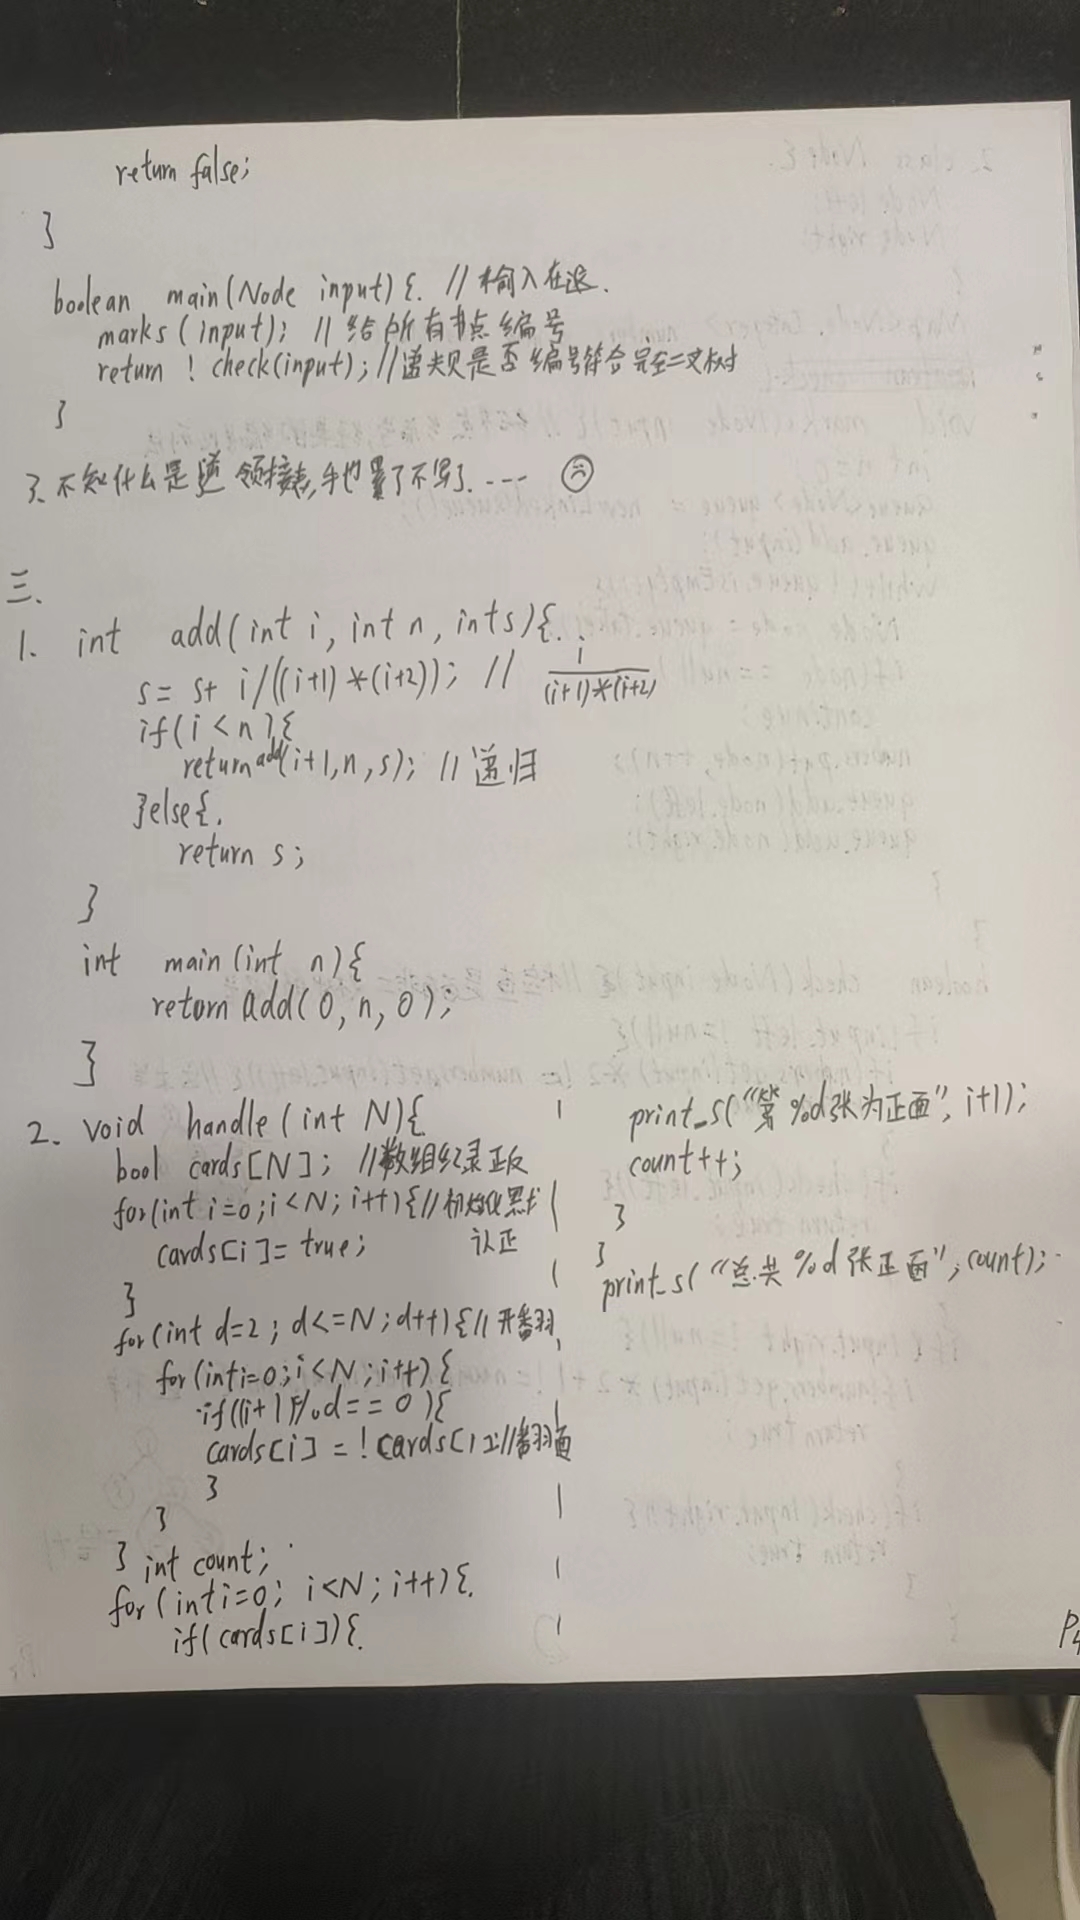 return false;
}
boolean main(Node input){. //输入在这.
marks(input); //给所有节点编号
return ! check(input); //递归是否编号符合完全二叉树
}
3、不知什么是逆领接表,手也累了不写了.----
三、
1、 int add(int i, int n, int s){.
s= s+ i/((i+1)*(i+2)); // i/(i+1)*(i+2)
if(i<n){
return add(i+1,n,s); //递归
}else{.
return s;
}
int main(int n){
return add(0,n,0);
}
2、void handle(int N){
bool cards[N]; //数组纪录正反
for(int i=0;i<N;i++){//初始化默
认正
cards[i]=true;
}
for(int d=2; d<=N;d++){//开翻
for(int i=0;i<N;i++){
if((i+1)%d==0){
cards[i]=!cards[i];//翻面
}
}
} int count;
for(int i=0; i<N; i++){.
if(cards[i]){.
print_s("第%d张为正面", i+1);
count++;
}
}
print_s("总共%d张正面", count);
P4